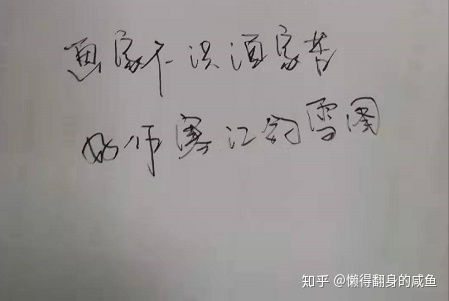 画家不识酒家苦
好作寒江钓雪图
知乎 @懒得翻身的咸鱼